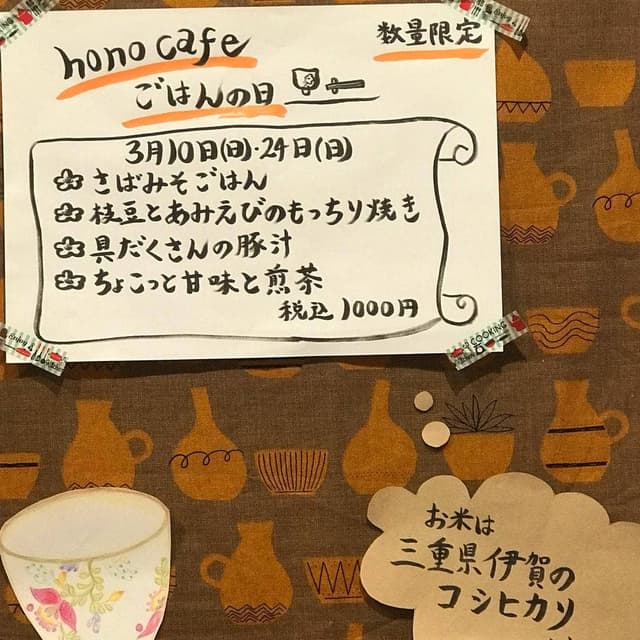 hono cafe
数量限定
ごはんの日
3月10日(日)・24日(日)
さばみそごはん
枝豆とあみえびのもっちり焼き
具だくさんの豚汁
ちょこっと甘味と煎茶
税込1000円
COOKING
お米は
三重県伊賀の
コシヒカリ